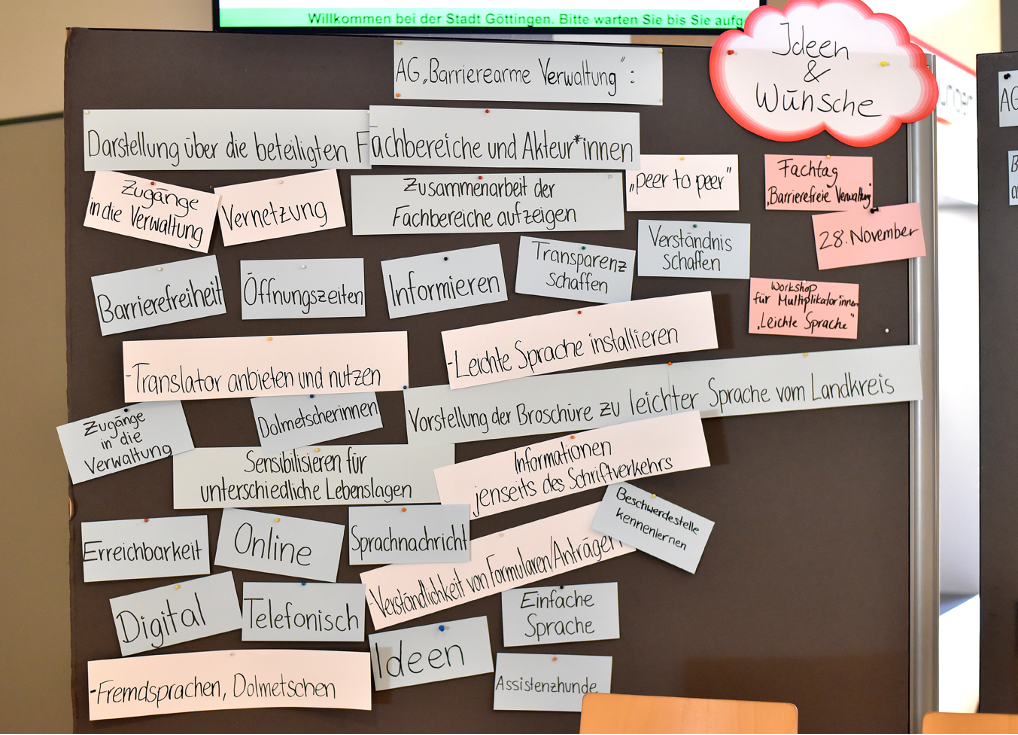 Willkommen bei der Stadt Göttingen. Bitte warten Sie bis Sie aufg
Ideen
&
Wünsche
AG „Barrierearme Verwaltung“:
Darstellung über die beteiligten Fachbereiche und Akteur*innen
Zugänge
in die
Verwaltung
Vernetzung
Zusammenarbeit der
Fachbereiche aufzeigen
„peer to peer“
Fachtag
„Barrierefreie Verwaltung“
28. November
Workshop
für Multiplikator:innen
„Leichte Sprache“
Barrierefreiheit
Öffnungszeiten
Informieren
Transparenz
schaffen
Verständnis
schaffen
-Translator anbieten und nutzen
-Leichte Sprache installieren
Vorstellung der Broschüre zu leichter Sprache vom Landkreis
Zugänge
in die
Verwaltung
Dolmetscherinnen
Sensibilisieren für
unterschiedliche Lebenslagen
Informationen
jenseits des Schriftverkehrs
Beschwerdestelle
kennenlernen
Erreichbarkeit
Online
Sprachnachricht
-Verständlichkeit von Formularen/Anträgen
Digital
Telefonisch
Ideen
Einfache
Sprache
-Fremdsprachen, Dolmetschen
Assistenzhunde
AG